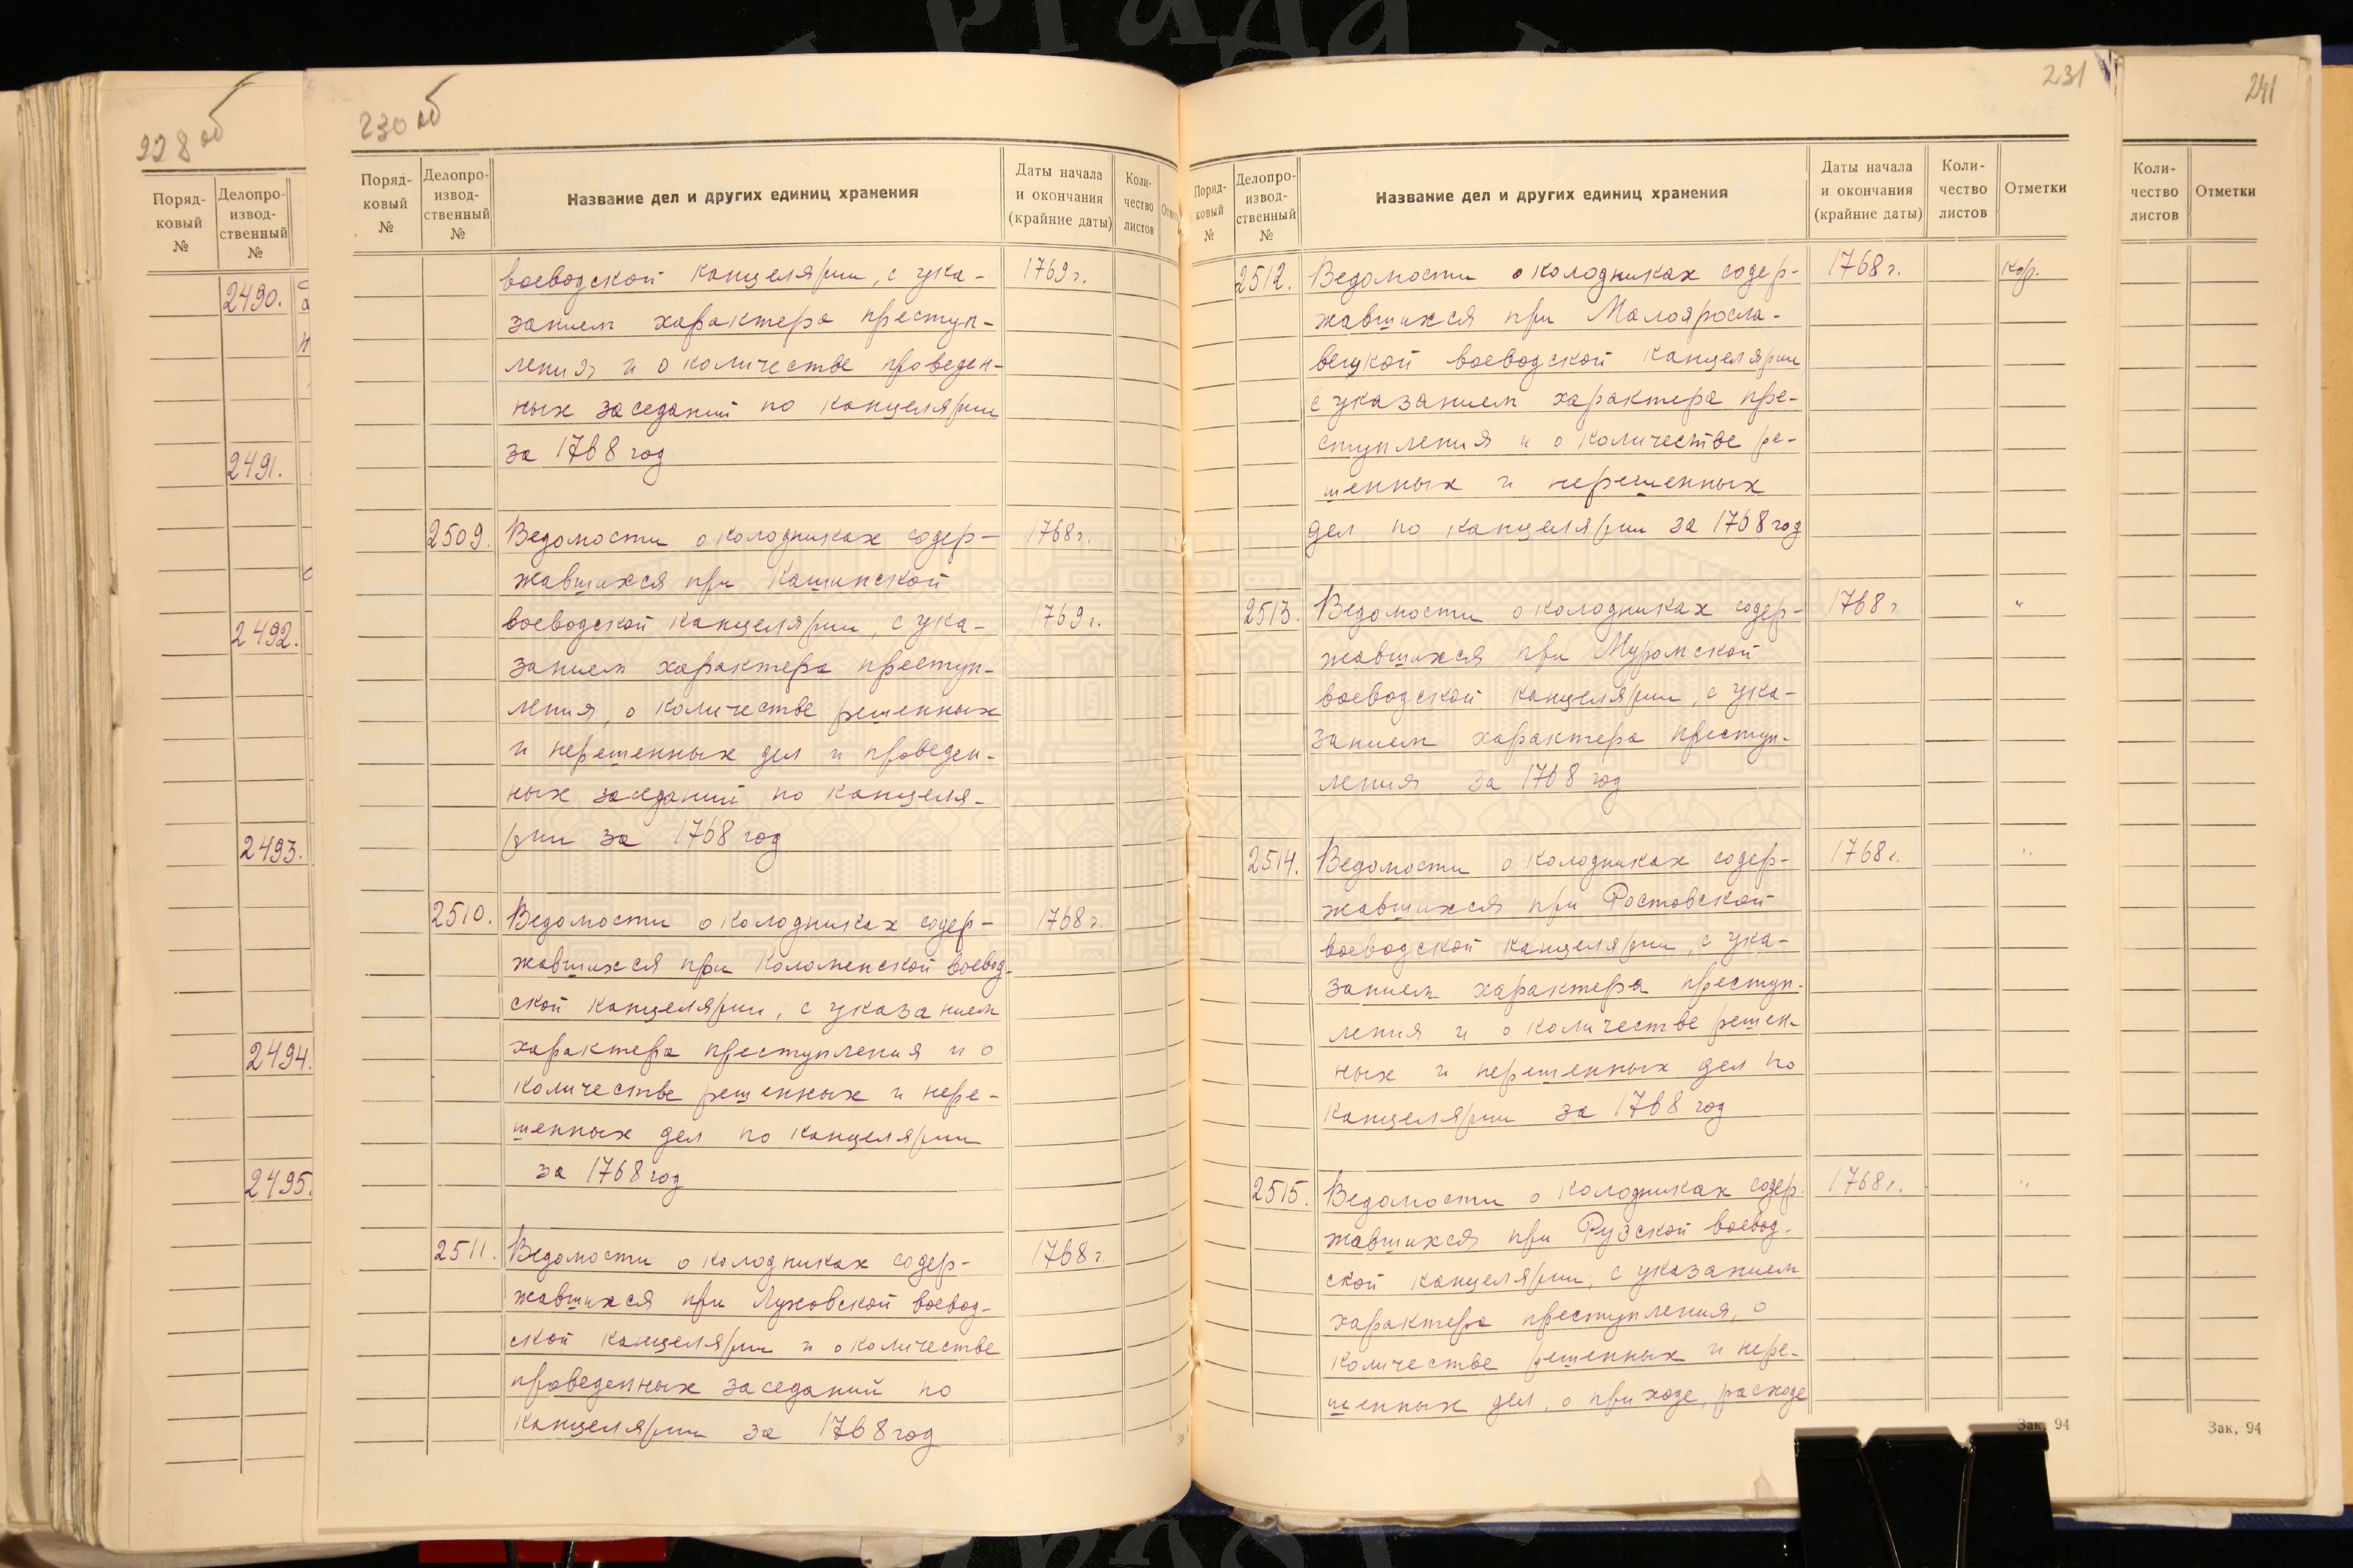 228 об
Поряд-
ковый
№
Делопро-
извод-
ственный
№
2490.
2491.
2492.
2493.
2494.
2495.
230 об
Поряд-
ковый
№
Делопро-
извод-
ственный
№
Название дел и других единиц хранения
Даты начала
и окончания
(крайние даты)
Коли-
чество
листов
воеводской канцелярии, с ука- 1769 г.
занием характера преступ-
ления и о количестве проведен-
ных заседаний по канцелярии
за 1768 год
2509. Ведомости о колодниках содер- 1768 г.
жавшихся при Кашинской
воеводской канцелярии, с ука- 1769 г.
занием характера преступ-
ления, о количестве решенных
и нерешенных дел и проведен-
ных заседаний по канцеля-
рии за 1768 год
2510. Ведомости о колодниках содер- 1768 г.
жавшихся при Коломенской воевод-
ской канцелярии, с указанием
характера преступления и о
количестве решенных и нере-
шенных дел по канцелярии
за 1768 год
2511. Ведомости о колодниках содер- 1768 г.
жавшихся при Луховской воевод-
ской канцелярии и о количестве
проведенных заседаний по
канцелярии за 1768 год
231
Поряд-
ковый
№
Делопро-
извод-
ственный
№
Название дел и других единиц хранения
Даты начала
и окончания
(крайние даты)
Коли-
чество
листов
Отметки
2512. Ведомости о колодниках содер- 1768 г.
жавшихся при Малояросла-
вецкой воеводской канцелярии
с указанием характера пре-
ступления и о количестве ре-
шенных и нерешенных
дел по канцелярии за 1768 год
2513. Ведомости о колодниках содер- 1768 г. "
жавшихся при Муромской
воеводской канцелярии, с ука-
занием характера преступ-
ления за 1768 год
2514. Ведомости о колодниках содер- 1768 г. "
жавшихся при Ростовской
воеводской канцелярии, с ука-
занием характера преступ-
ления и о количестве решен-
ных и нерешенных дел по
канцелярии за 1768 год
2515. Ведомости о колодниках содер- 1768 г. "
жавшихся при Рузской воевод-
ской канцелярии, с указанием
характера преступления, о
количестве решенных и нере-
шенных дел, о приходе, расходе
Зак. 94
241
Коли-
чество
листов
Отметки
Зак. 94